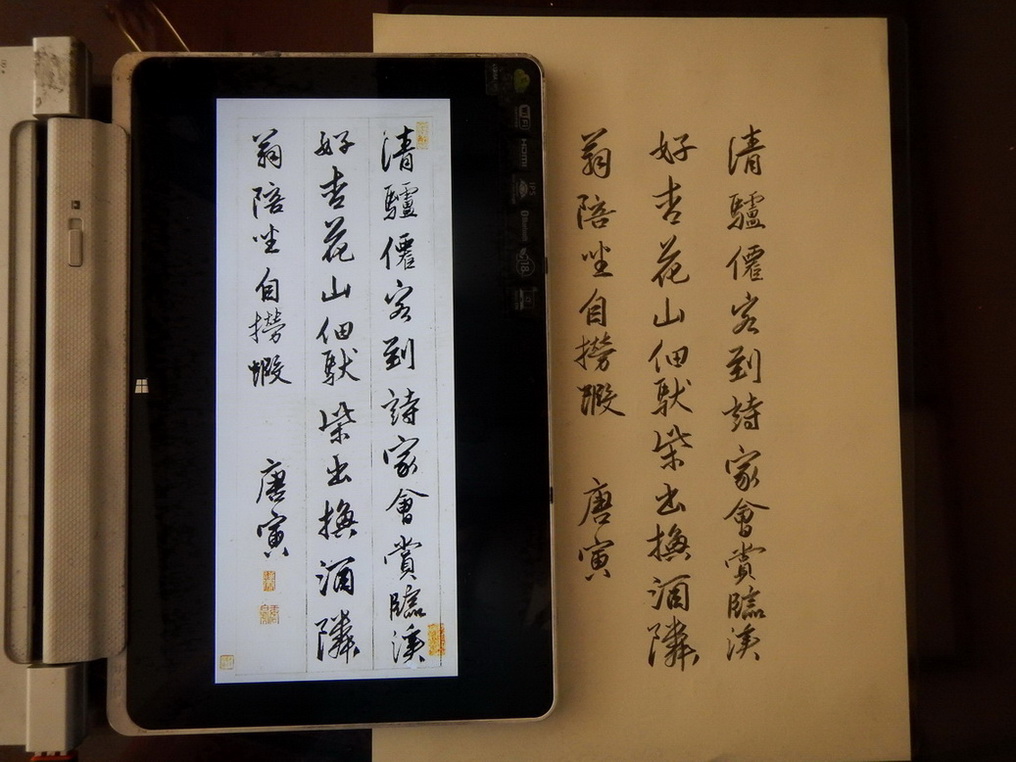 清驢僊客到詩家會賞臨溪
好杏花山佃馱柴出換酒隣
翁陪坐自撈蝦
唐寅
清驢僊客到詩家會賞臨溪
好杏花山佃馱柴出換酒隣
翁陪坐自撈蝦
唐寅
HDMI
IPS